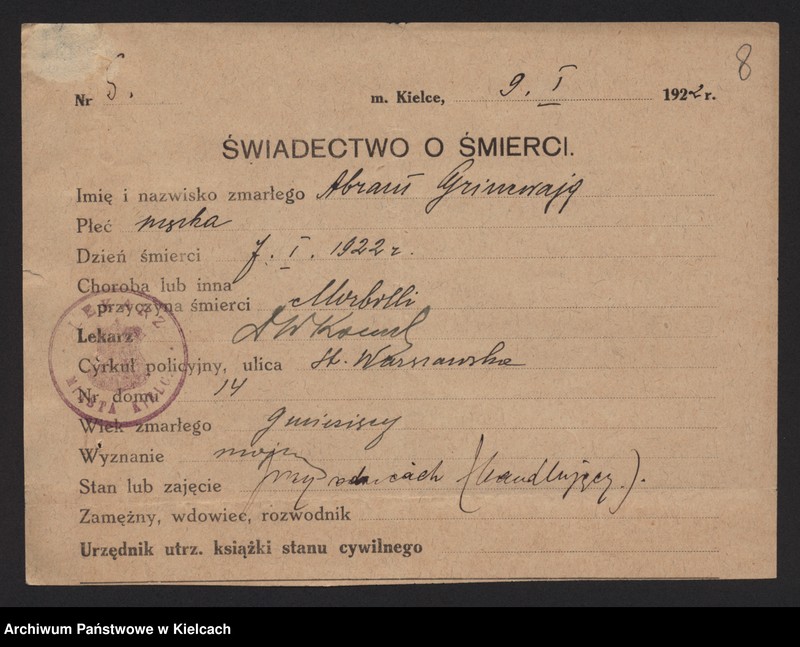 8
Nr 5. m. Kielce, 9. I 1922 r.
ŚWIADECTWO O ŚMIERCI.
Imię i nazwisko zmarłego Abram
Płeć męska
Dzień śmierci 7. I. 1922 r.
Choroba lub inna
przyczyna śmierci Morbilli
Lekarz
Cyrkuł policyjny, ulica St. Warszawska
Nr domu 14
Wiek zmarłego 9 miesięcy
Wyznanie mojż
Stan lub zajęcie przy rodzicach (handlujący).
Zamężny, wdowiec, rozwodnik
Urzędnik utrz. książki stanu cywilnego
LEKARZ
MIASTA KIELC
Archiwum Państwowe w Kielcach